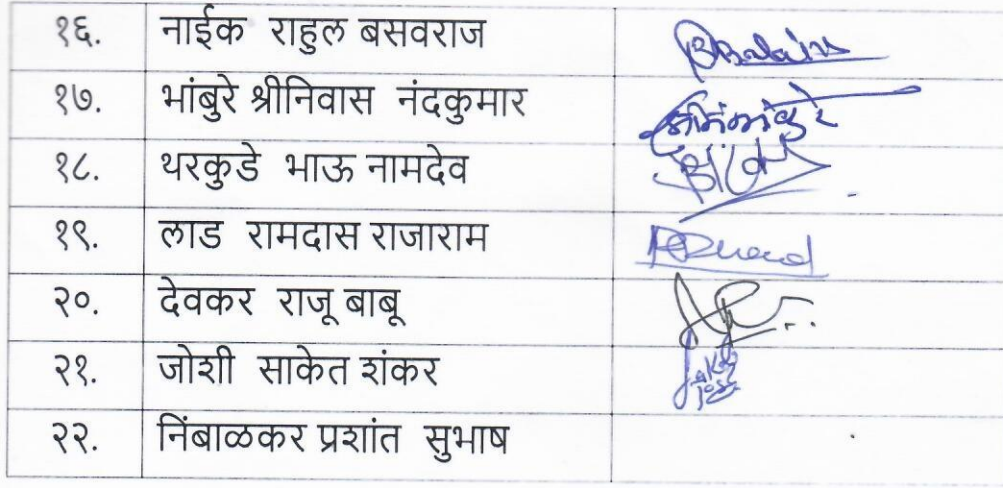 १६. नाईक राहुल बसवराज
१७. भांबुरे श्रीनिवास नंदकुमार
१८. थरकुडे भाऊ नामदेव
१९. लाड रामदास राजाराम
२०. देवकर राजू बाबू
२१. जोशी साकेत शंकर
२२. निंबाळकर प्रशांत सुभाष